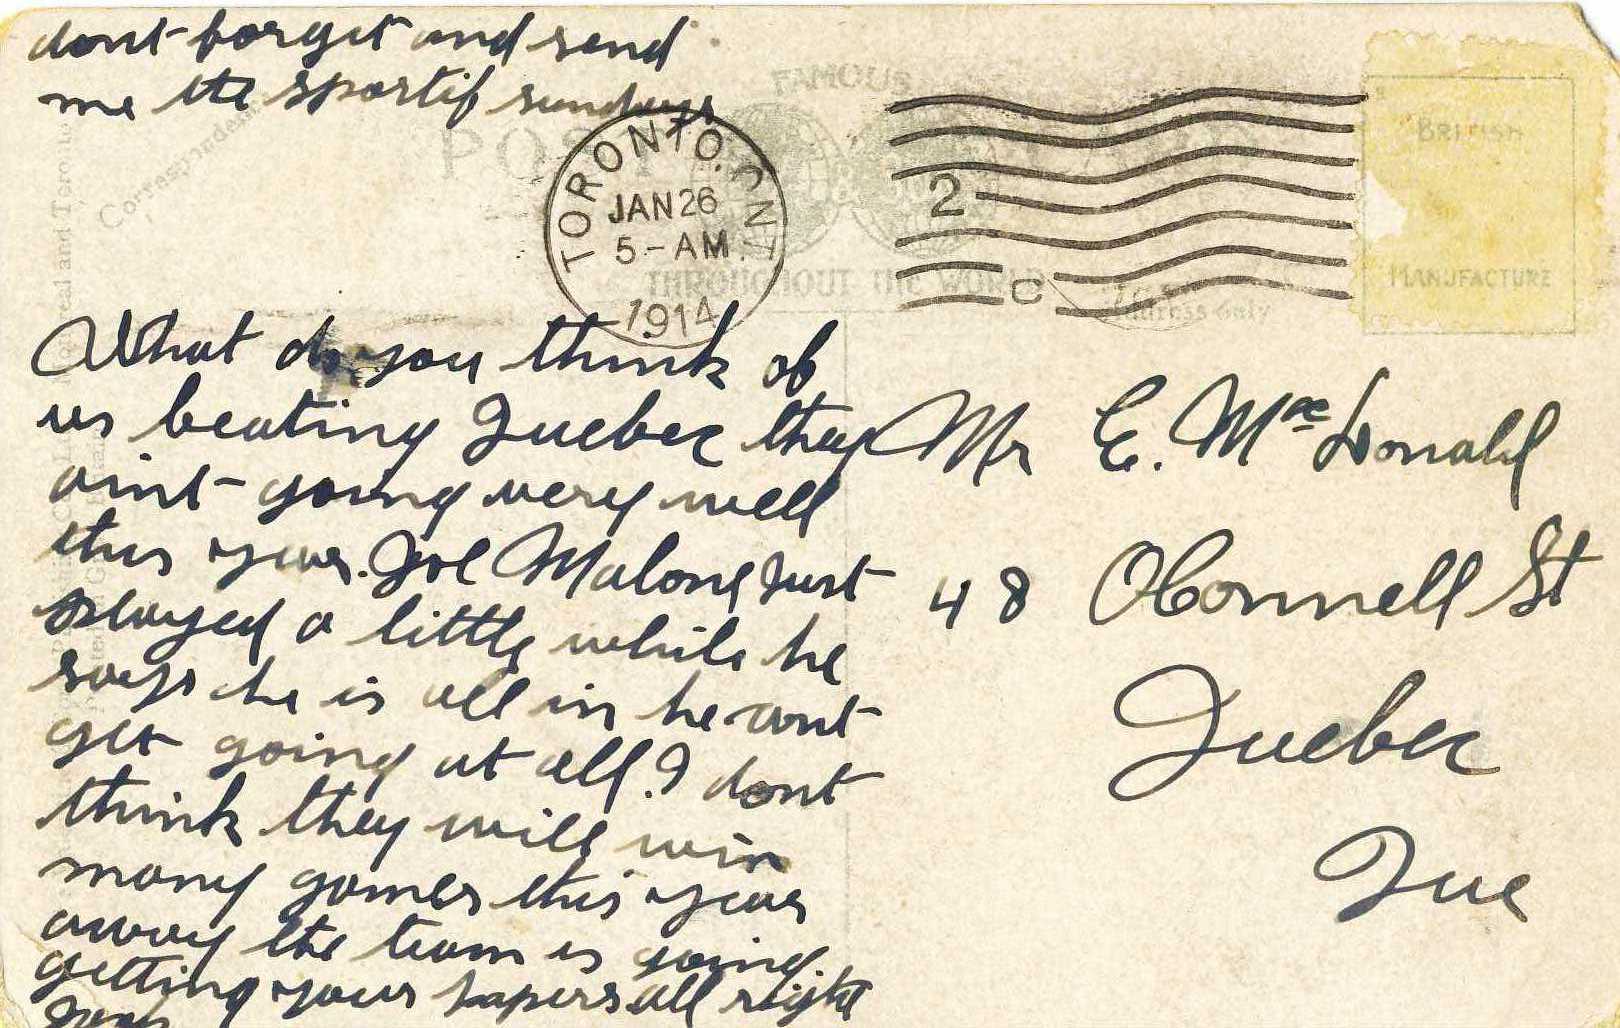 dont forget and send
me the sportif sundays
Correspondence
POST
FAMOUS
THROUGHOUT THE WORLD
TORONTO. ONT.
JAN 26
5-AM
1914
2
C
BRITISH
MANUFACTURE
Address only
Montreal and Toronto
What do you think of
us beating Quebec they
aint going very well
this year. Joe Malone Just
played a little while he
says he is all in he cant
get going at all. I dont
think they will win
many games this year
away the team is going.
getting your papers all right
Mr E. MacDonald
48 OConnell St
Quebec
Que